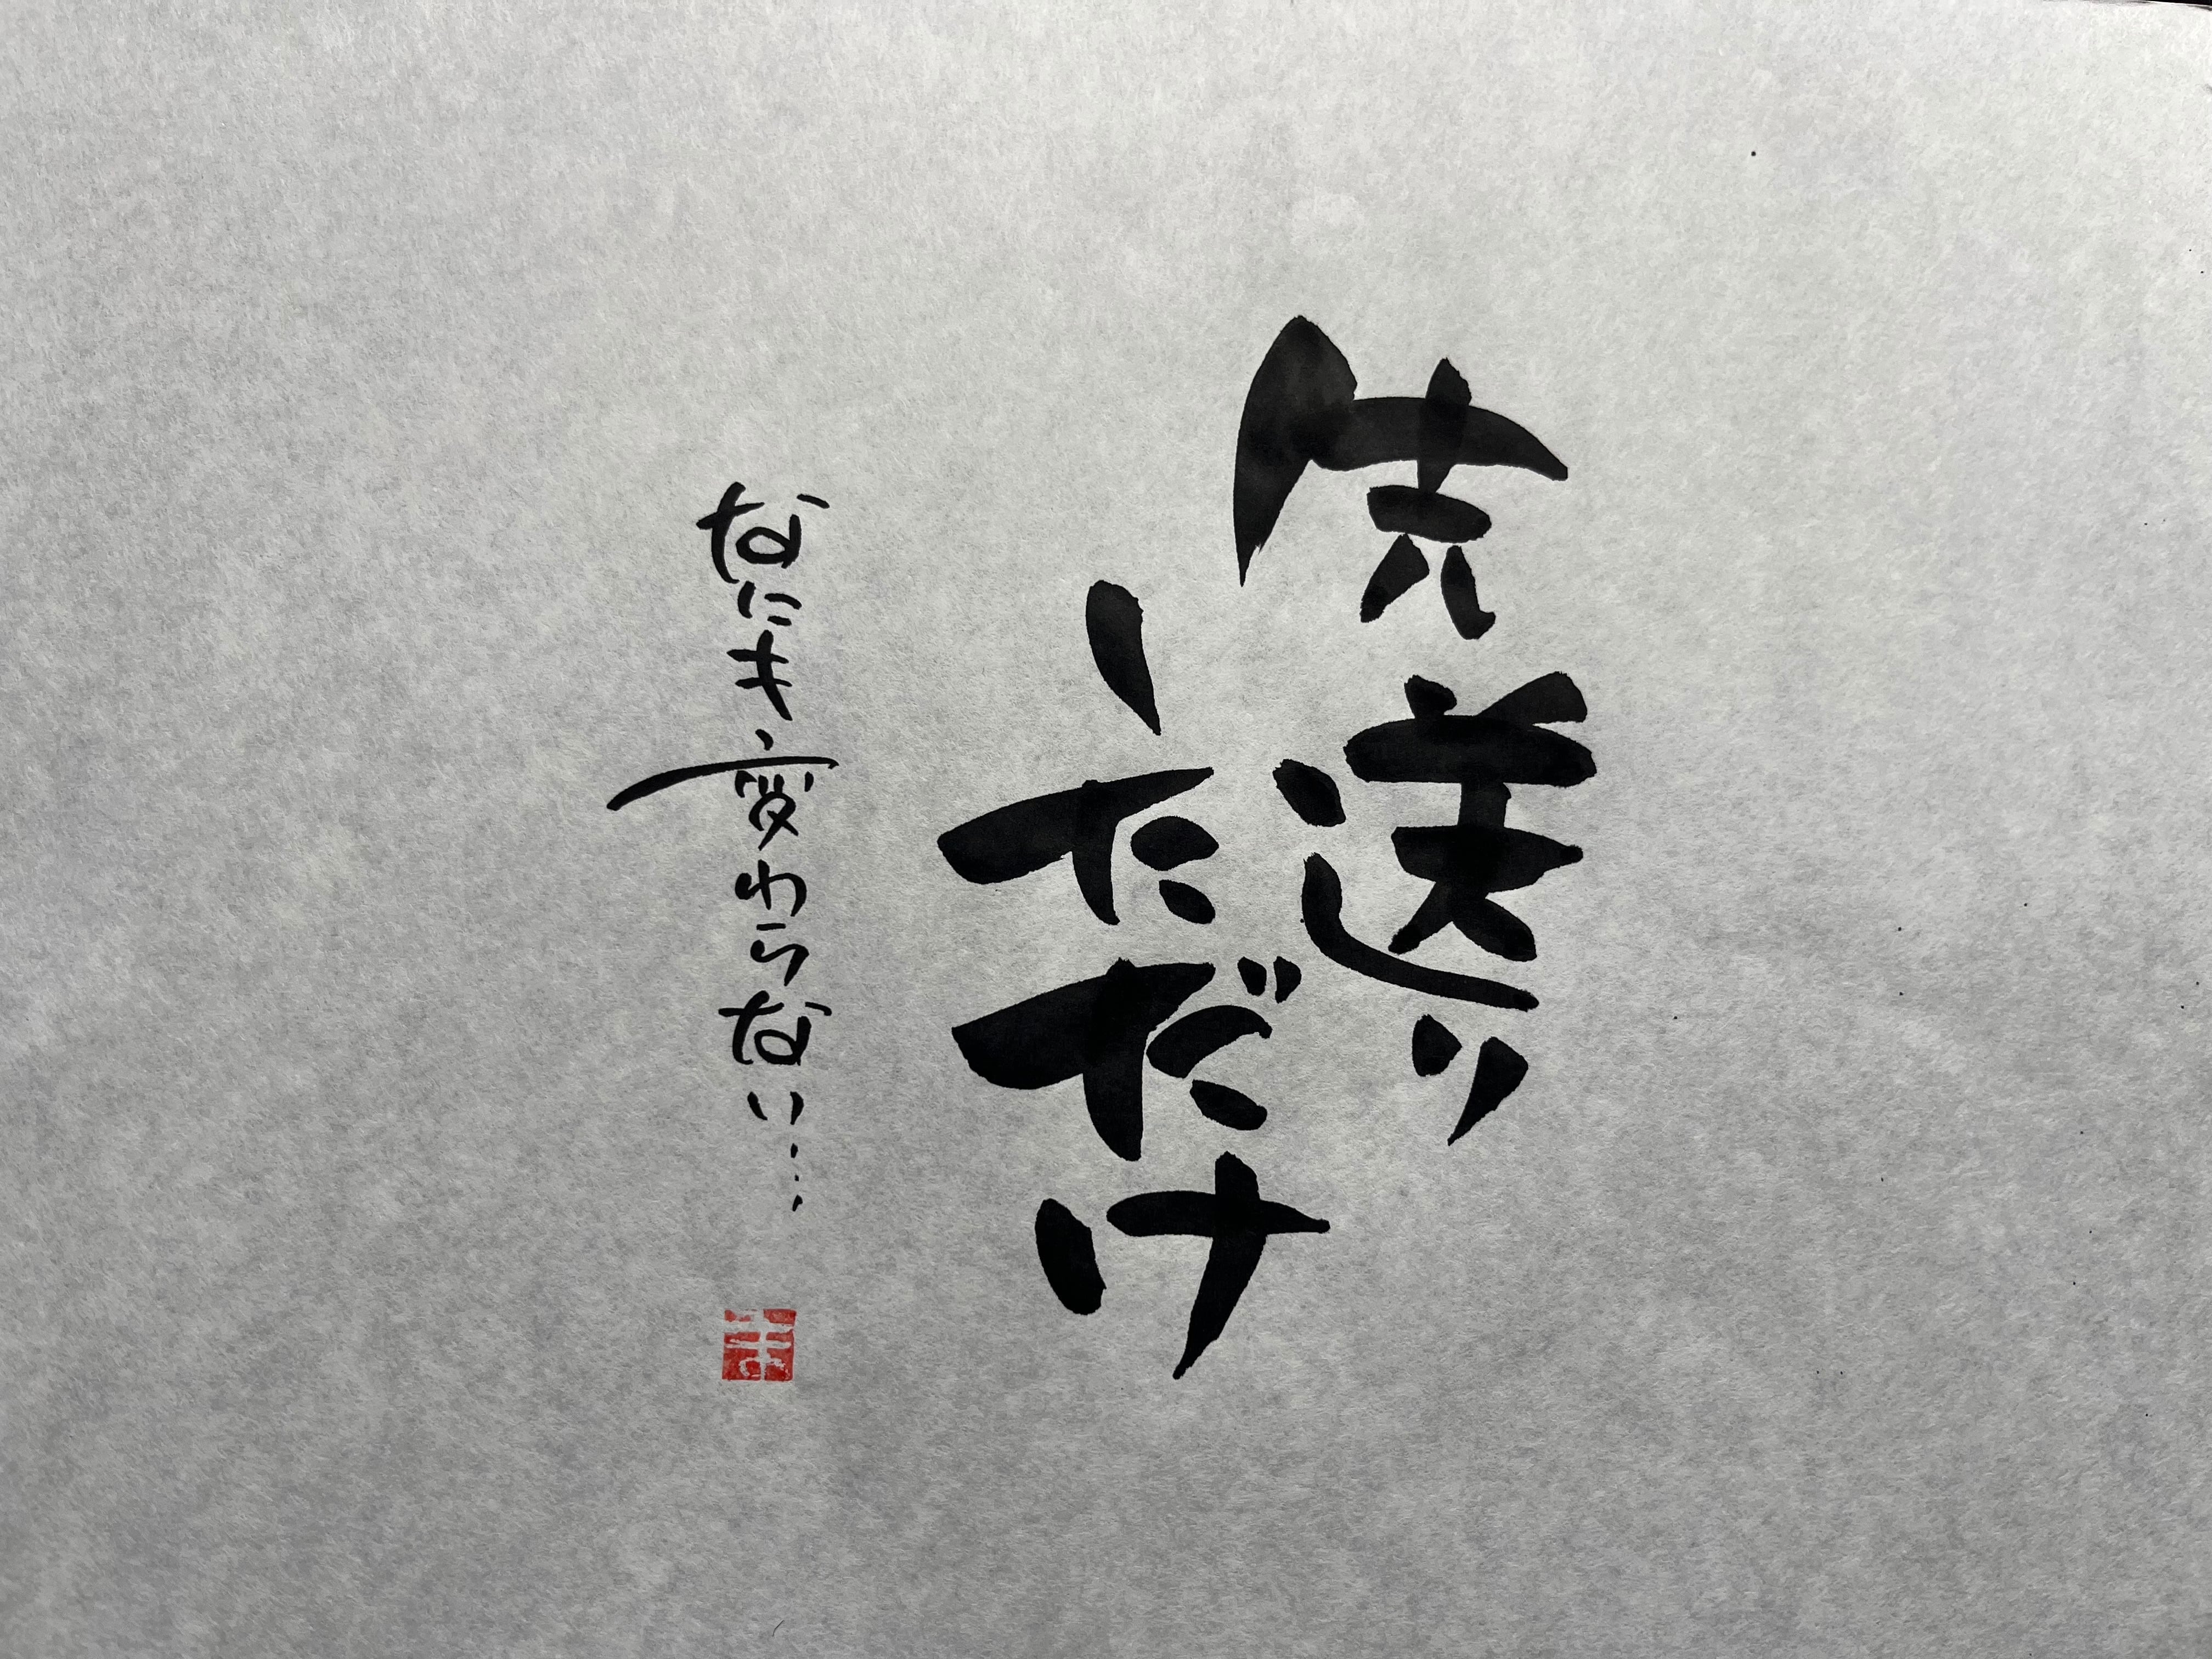 先送り
しただけ
なにも変わらない…